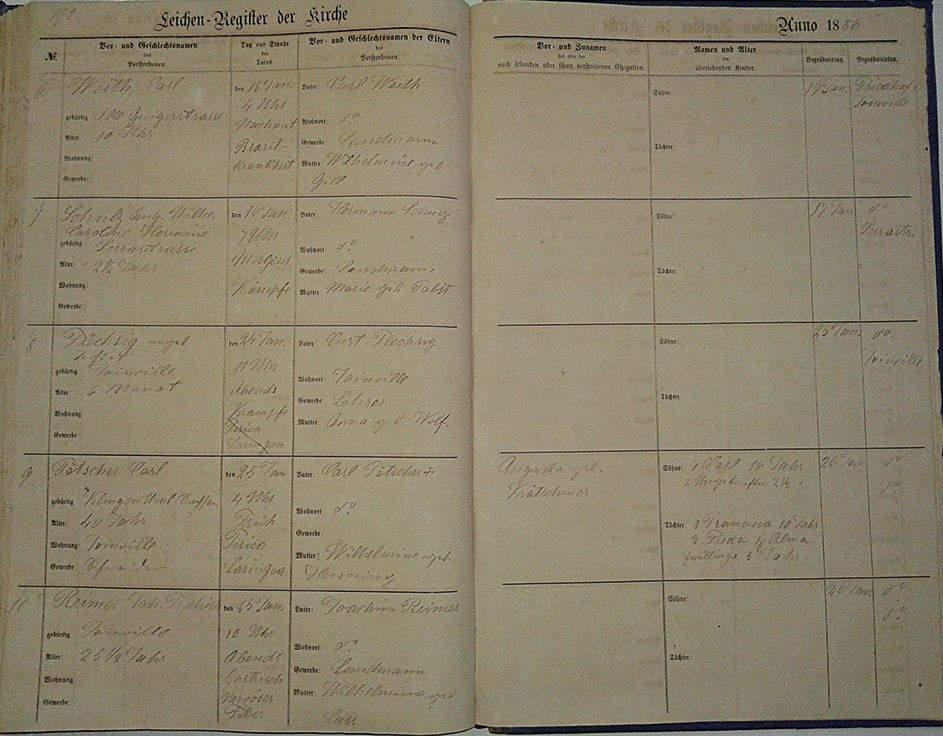 192.
Leichen-Register der Kirche
Anno 1886
№
Vor- und Geschlechtsnamen
des
Verstorbenen.
Tag und Stunde
des
Todes
Vor- und Geschlechtsnamen der Eltern
des
Verstorbenen.
Vor- und Zunamen
des oder der
noch lebenden oder schon verstorbenen Ehegatten.
Namen und Alter
der
überlebenden Kinder.
Begräbnißtag.
Begräbnißort.
6
Weith Carl
gebürtig
Alter: 10 Uhr
Wohnung:
Gewerbe:
den 18 Jan.
4 Uhr
Brasil-
krankheit
Vater: Carl Weith
Wohnort: do
Gewerbe: Landmann
Mutter: Wilhelmine geb
Gill
Söhne:
Töchter:
19 Jan.
Friedhof
Joinville
7
Schulz Wilhe.
Caroline Hermine
gebürtig Serrastrasse
Alter: 2½ Jahr
Wohnung:
Gewerbe:
den 16 Jan.
7 Uhr
Morgens
Krämpfe
Vater: Hermann
Wohnort: do
Gewerbe: Landmann
Mutter: Marie geb. Pabst
Söhne:
Töchter:
17 Jan
do
8
Flechsig unget
Tochter
gebürtig Joinville
Alter 6 Monat
Wohnung:
Gewerbe:
den 24 Jan.
10 Uhr
Abends
Krämpfe
Vater: Curt Flechsig
Wohnort: Joinville
Gewerbe: Lehrer
Mutter: Anna geb. Wolf.
Söhne:
Töchter:
25 Jan.
do.
Joinville
9
Pötscher Carl
gebürtig Klingenthal (Sachsen
Alter: 40 Jahr
Wohnung: Joinville
Gewerbe: Schneider
den 25 Jan
4 Uhr
Früh
Tisica
Laringea
Vater: Carl Pötscher +
Wohnort: do.
Gewerbe:
Mutter: Wilhelmine geb.
Henning
Augusta geb.
Söhne: 1 Carl 16 Jahr
2 Ungetaufter 2½ "
Töchter: 1 Francisca 10 Jahr
2 Frieda Alma
Zwillinge 5 Jahr
26 Jan
do
do
10
Reimer Joh. Friedrich
gebürtig Joinville
Alter: 25½ Jahr
Wohnung:
Gewerbe:
den 25 Jan.
10 Uhr
Abends
Gastrisch
Nervöser
Fieber
Vater: Joachim Reimer
Wohnort: do
Gewerbe: Landmann
Mutter: Wilhelmine geb
Söhne:
Töchter:
26 Jan
do.
do.